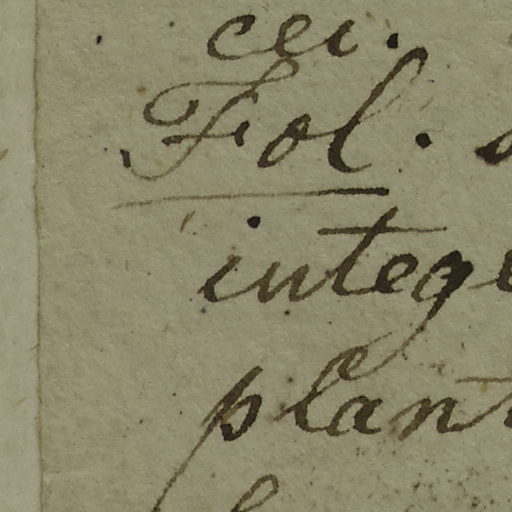 cei.
Fol.
integ
plan